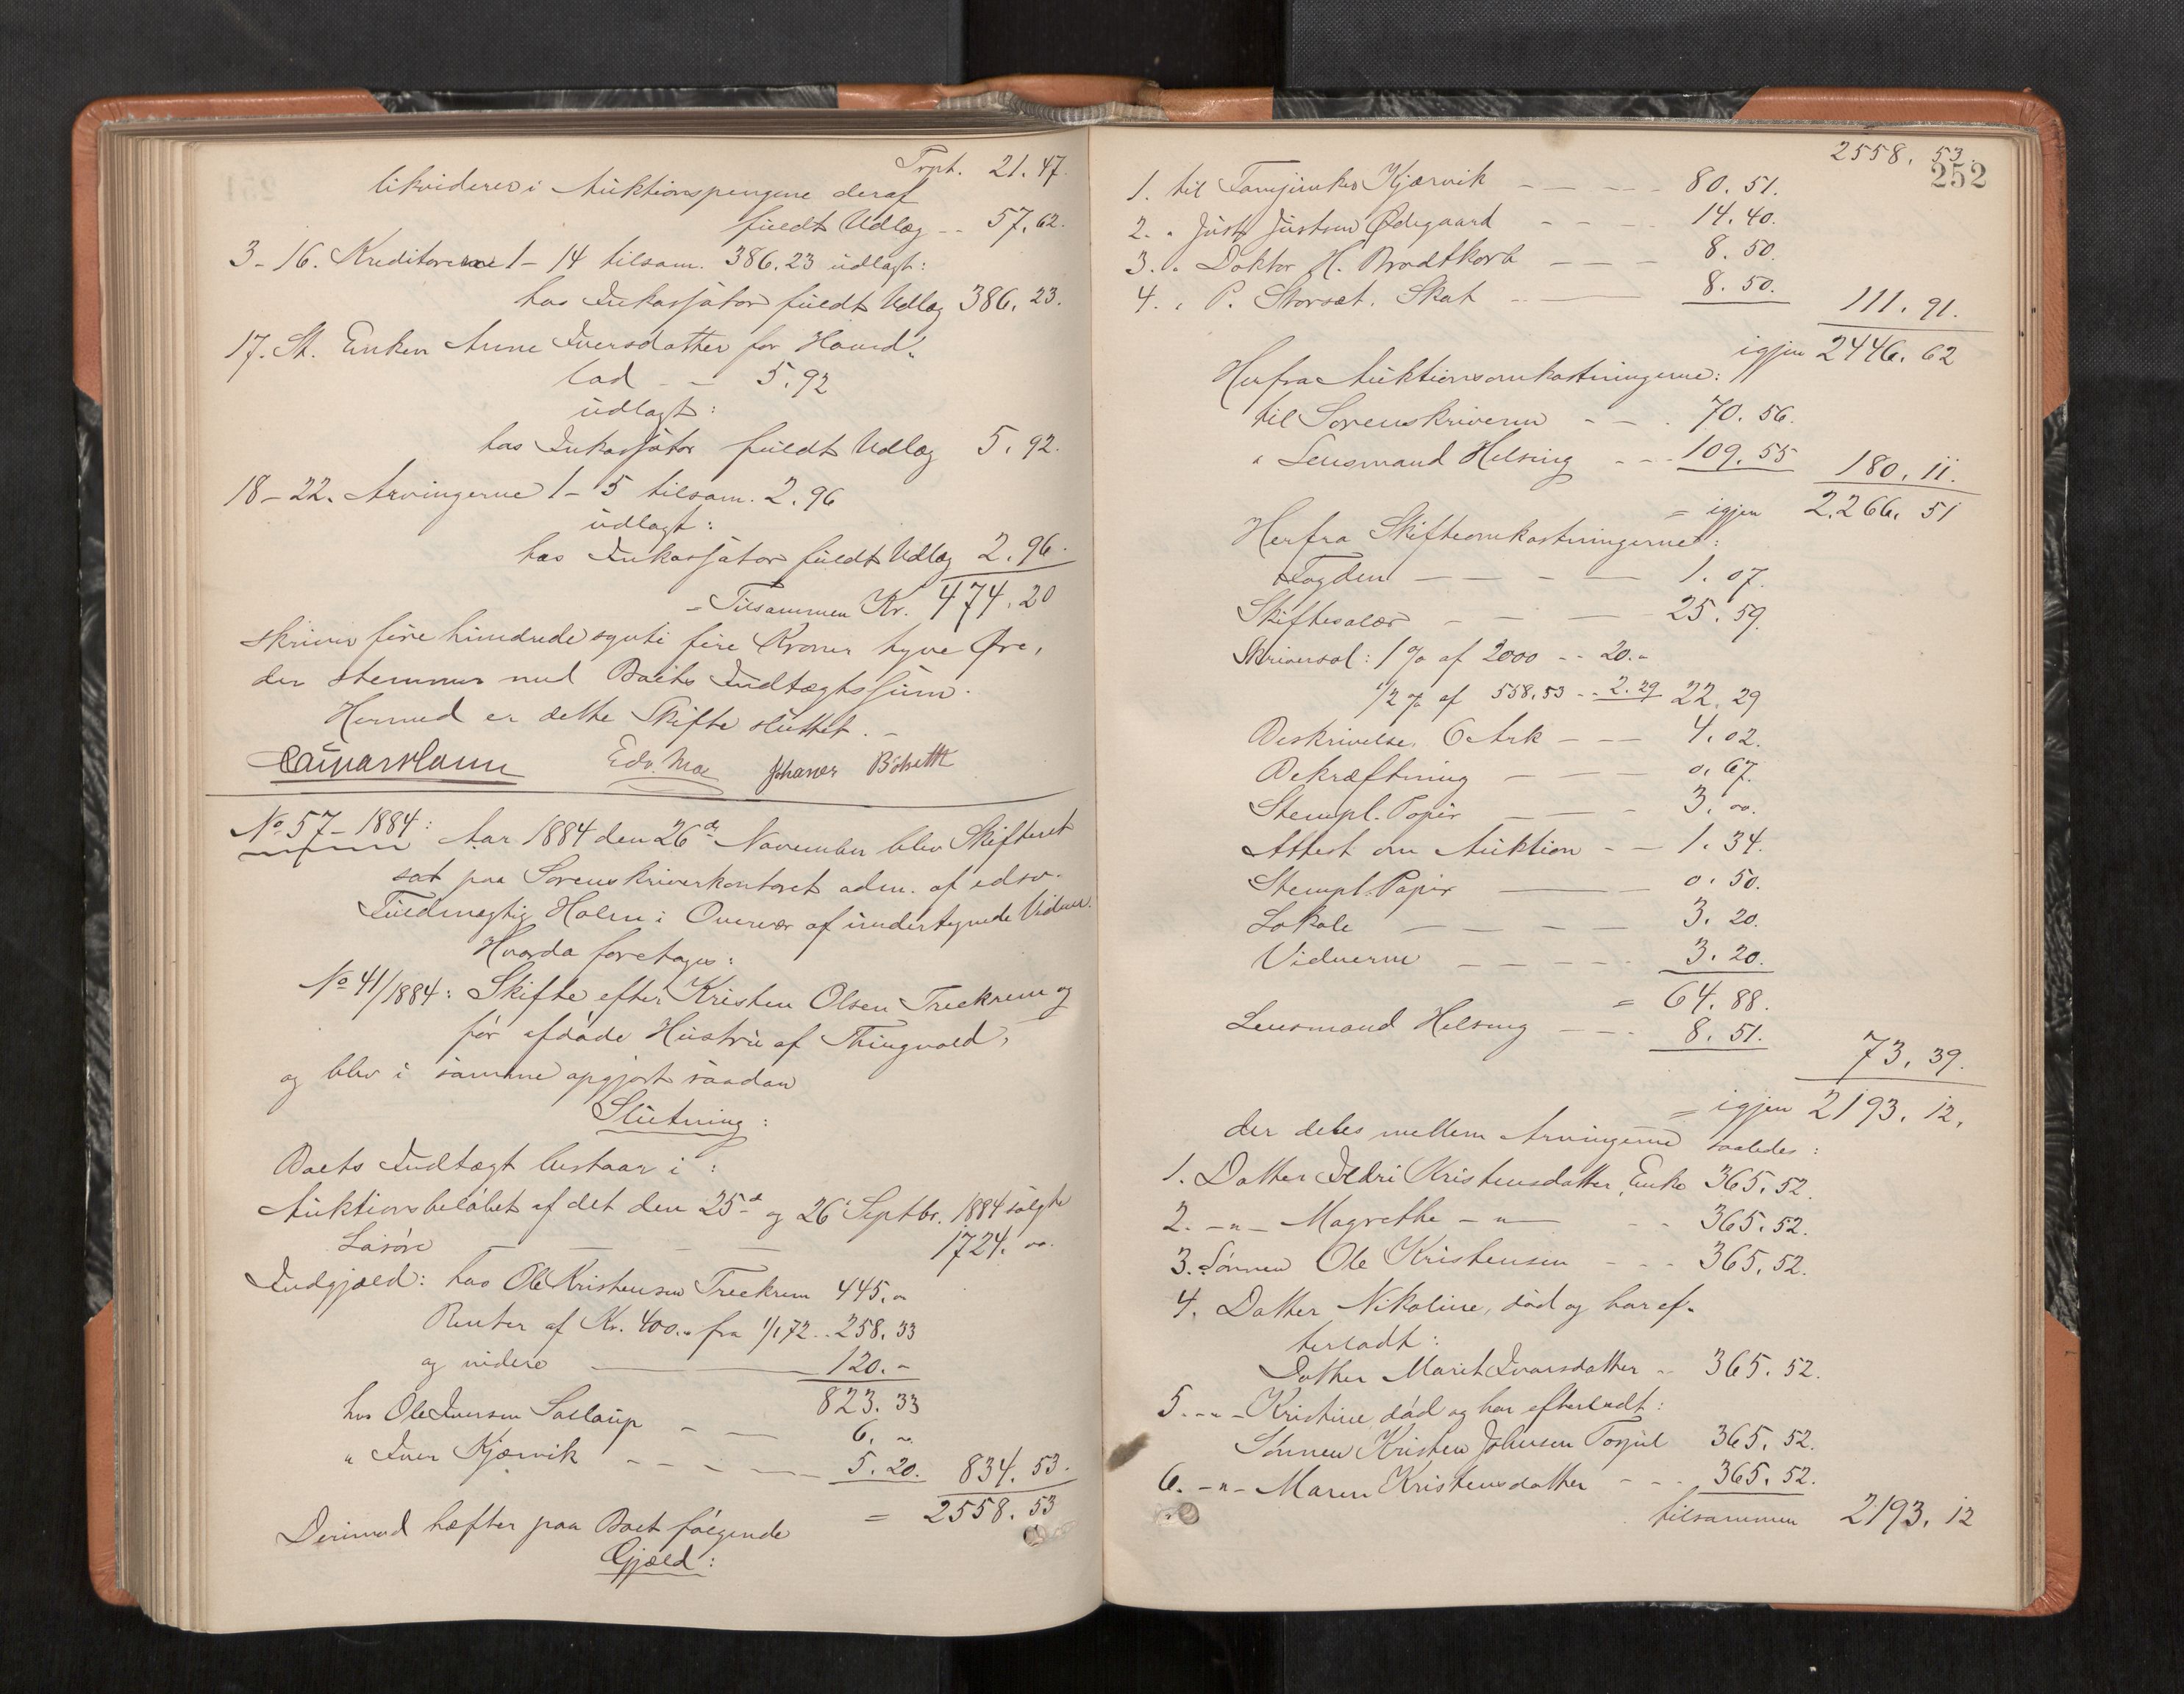 Trpt. 21.47.
likvideres i Auktionspengene deraf
fuldt Udlæg -- 57.62.
3-16. Kreditorerne 1-14 tilsam. 386.23 udlagt:
hos Inkassator fuldt Udlæg 386.23.
17. St. Enken Anne Iversdatter for
lad - - 5.92
udlagt:
hos Inkassator fuldt Udlæg 5.92.
18-22. Arvingerne 1-5 tilsam. 2.96
udlagt:
hos Inkassator fuldt Udlæg 2.96.
= Tilsammen Kr. 474.20
skriver fire hundrede sytti fire Kroner tyve Øre,
der stemmer med Boets Indtægtssum.
Hermed er dette Skifte sluttet. -
Edv. Moe Johanes
No 57-1884: Aar 1884 den 26de November blev Skifteret
sat paa Sorenskriverkontoret adm. af edsv.
Fuldmægtig Holm i Overvær af undertegnede Vidner.
Hvorda foretoges:
No 41/1884: Skifte efter Kristen Olsen Treekrem og
før afdøde Hustru af Thingvold,
og blev i samme opgjort saadan
Slutning:
Boets Indtægt bestaar i:
Auktionsbeløbet af det den 25de og 26de Septbr. 1884 solgte
Løsøre - - - - 1724. "
Indgjæld: hos Ole Kristensen Treekrem 445. "
Renter af Kr. 400. " fra 1/1 72 .. 258.33
og videre - 120. "
823.33
hos Ole Iversen - - 6. "
" Iver Kjørvik - - - - 5.20. 834.53.
= 2558.53
Derimod hæfter paa Boet følgende
Gjæld:
2558.53.
252
1. til Kjørvik - - - - 80.51.
2. " Just Justsen Ødegaard - - - 14.40.
3. " Doktor H. Brodtkorb - - - 8.50.
4. " P. Storset. Skat - - 8.50. 111.91.
igjen 2446.62
Herfra Auktionsomkostningerne:
til Sorenskriveren - - . 70.56.
" Lensmand Helsing - - - 109.55 180.11.
= igjen 2.266.51
Herfra Skifteomkostningerne:
Fogden - - - - 1.07.
Skiftesalær - - - 25.59.
Skriversal: 1 % af 2000 - - 20. "
1/2 % af 558.53 - - 2.29 22.29
Beskrivelse, 6 Ark - - - 4.02.
Bekræftning - - - 0.67.
Stempl. Papir - - - 3. "
Attest om Auktion - - 1.34.
Stempl. Papir - - 0.50.
Lokale - - - - 3.20.
Vidnerne - - - - 3.20.
= 64.88.
Lensmand Helsing - - - 8.51. 73.39.
= igjen 2193.12.
der deles mellem Arvingerne saaledes:
1. Datter Ildri Kristensdatter, Enke 365.52.
2. - " - Magrethe - " - - - 365.52.
3. Sønnen Ole Kristensen - - - 365.52.
4. Datter Nikoline, død og har ef-
terladt:
Datter Marit Ivarsdatter - 365.52.
5. - " - Kristine død og har efterladt:
Sønnen Kristen Johnsen 365.52.
6. - " - Maren Kristensdatter - - - 365.52.
tilsammen 2193.12